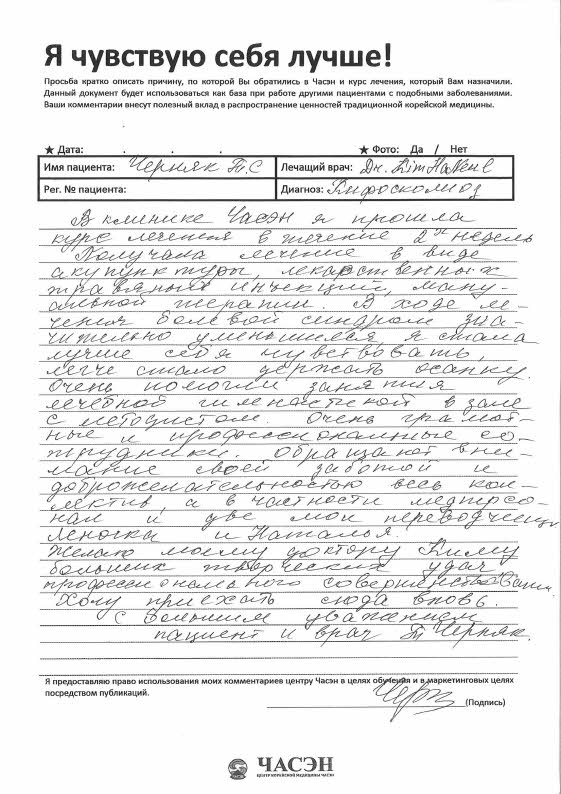 Я чувствую себя лучше!
Просьба кратко описать причину, по которой Вы обратились в Часэн и курс лечения, который Вам назначили.
Данный документ будет использоваться как база при работе другими пациентами с подобными заболеваниями.
Ваши комментарии внесут полезный вклад в распространение ценностей традиционной корейской медицины.
★ Дата: . . . ★ Фото: Да / Нет
Имя пациента: Черняк Т.С Лечащий врач: Dr.
Рег. № пациента: Диагноз: Кифосколиоз
В клинике Часэн я прошла
курс лечения в течение 2х недель
Получала лечение в виде
акупунктуры, лекарственных
травяных инъекций, ману-
альной терапии. В ходе ле-
чения болевой синдром зна-
чительно уменьшился, я стала
лучше себя чувствовать,
легче стало держать осанку.
Очень помогли занятия
лечебной гимнастикой в зале
с методистом. Очень грамот-
ные и профессиональные со-
трудники. Обращает вни-
мание своей заботой и
доброжелательностью весь кол-
лектив, а в частности медперсо-
нал и две мои переводчицы
Леночка и Наталья.
Желаю моему доктору Киму
больших творческих удач
профессионального
Хочу приехать сюда вновь.
С большим уважением
пациент и врач Т Черняк.
Я предоставляю право использования моих комментариев центру Часэн в целях обучения и в маркетинговых целях
посредством публикаций.
(Подпись)
ЧАСЭН
ЦЕНТР КОРЕЙСКОЙ МЕДИЦИНЫ ЧАСЭН